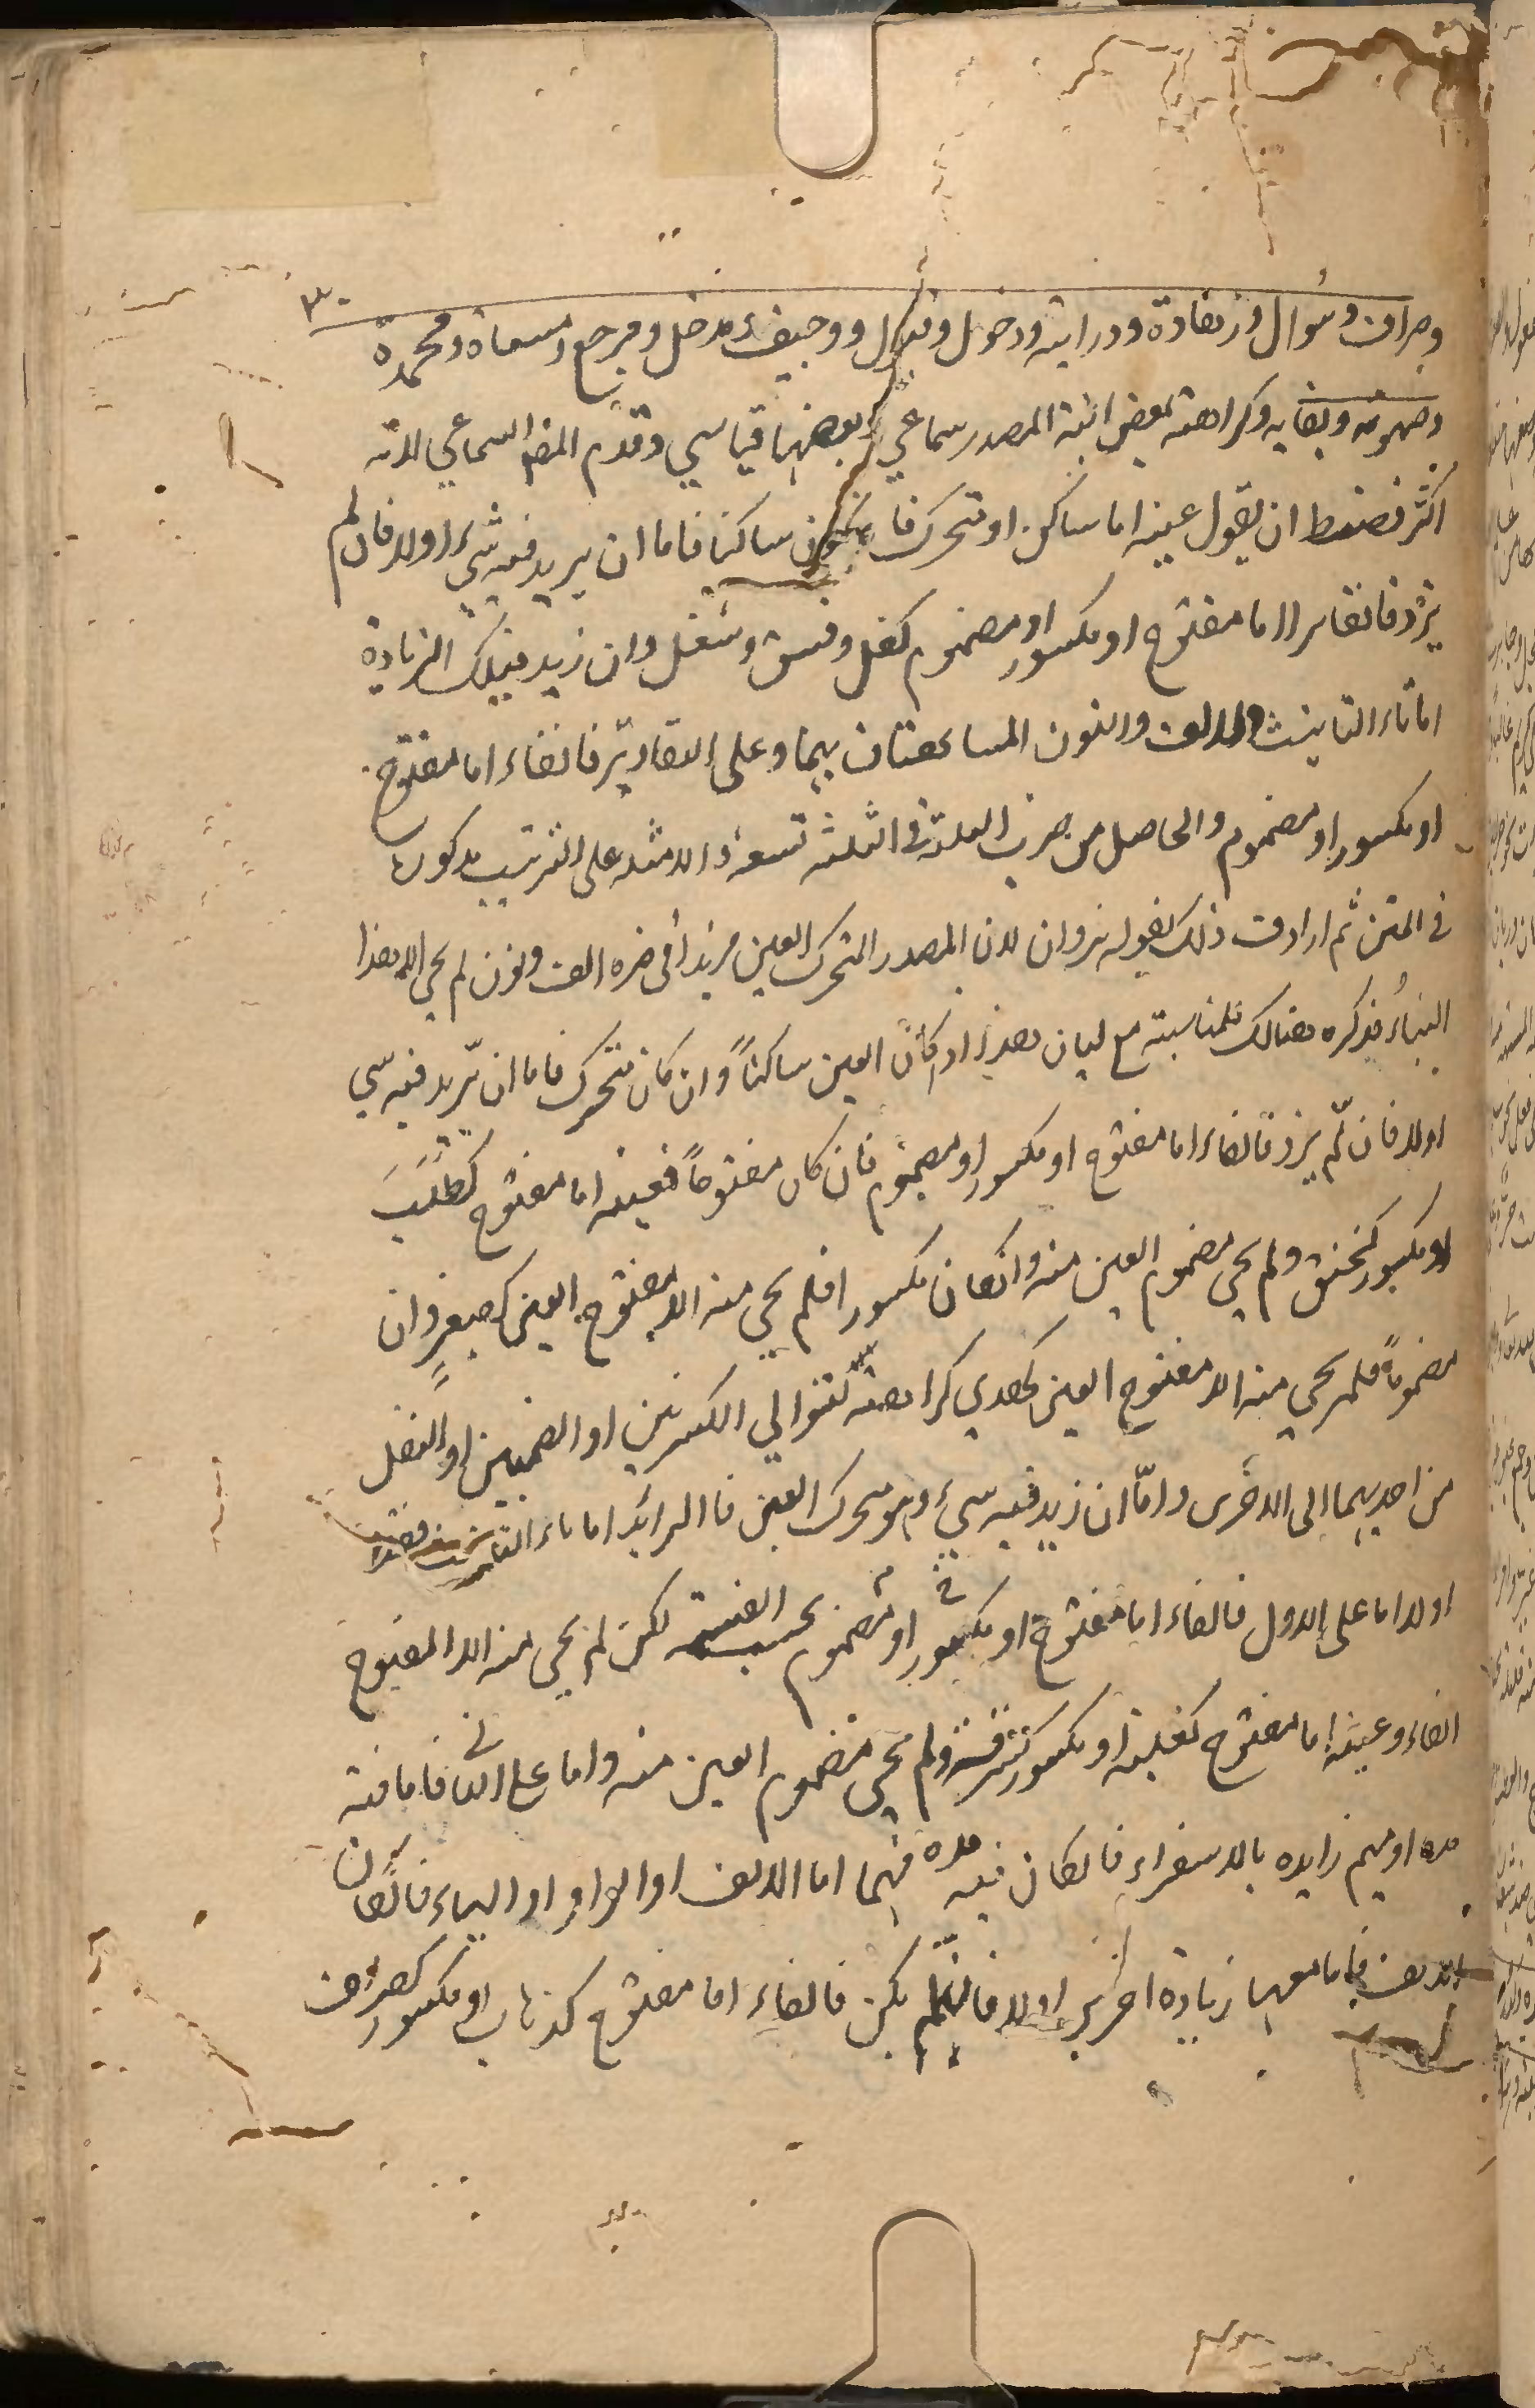 ٣٠
وصراف وسؤال وزهادة ودراية ودخول وقبول ووجيف ومدخل ومرجع ومسعاة ومحمدة
وصهوبة وبغايه وكراهته بعض ابنية المصدر سماعي وبعضها قياسي وقدم المص السماعي لانه
اكثر فضبط ان يقول عينه اما ساكن او متحرك فا يكون ساكنا فاما ان يزيد فيه شيء اولا فان لم
يزد فالفاء اما مفتوح او مكسور او مضموم كقتل وفسق وشغل وان زيد فتلك الزيادة
اما تاء التانيث والالف والنون المساعفتان بهما وعلى التقادير فالفاء اما مفتوح
او مكسور او مضموم والحاصل من ضرب الثلثة في الثلثه تسعة والامثله على الترتيب مذكورة
في المتن ثم اردف ذلك بقوله نزوان لان المصدر المتحرك العين مزيدا في اخره الف ونون لم يجي الا هذا
البناء فذكره هنالك لمناسبته مع ليان هذا اذا كان العين ساكناً وان كان متحرك فاما ان يزيد فيه شي
اولا فان لم يزد فالفاء اما مفتوح او مكسور او مضموم فان كان مفتوحاً فعينه اما مفتوح كطلب
او مكسور كخنق ولم يجي مضموم العين منه وان كان مكسورا فلم يجي منه الا مفتوح العين كصغر وان
مضموماً فلم يجي منه الا مفتوح العين كهدي كراهة لتوالي الكسرتين او الضمتين او النقل
من احديهما الى الاخرى واما ان زيد فيه شيء وهو متحرك العين فا الزائد اما تاء التانيث فقط
اولا اما على الاول فالفاء اما مفتوح او مكسور او مضموم بحسب القسمة لكن لم يجي منه الا المفتوح
الفاء وعينه اما مفتوح كغلبة او مكسور كسرقة ولم يجي مضموم العين منه واما على الثاني فاما فيه
مدة او ميم زايده بالاستقراء فان كان فيه مدة فهما اما الالف او الواو او الياء فان كان
الالف فاما معها زيادة اخرى اولا فان لم يكن فالفاء اما مفتوح كذهاب او مكسور كصراف